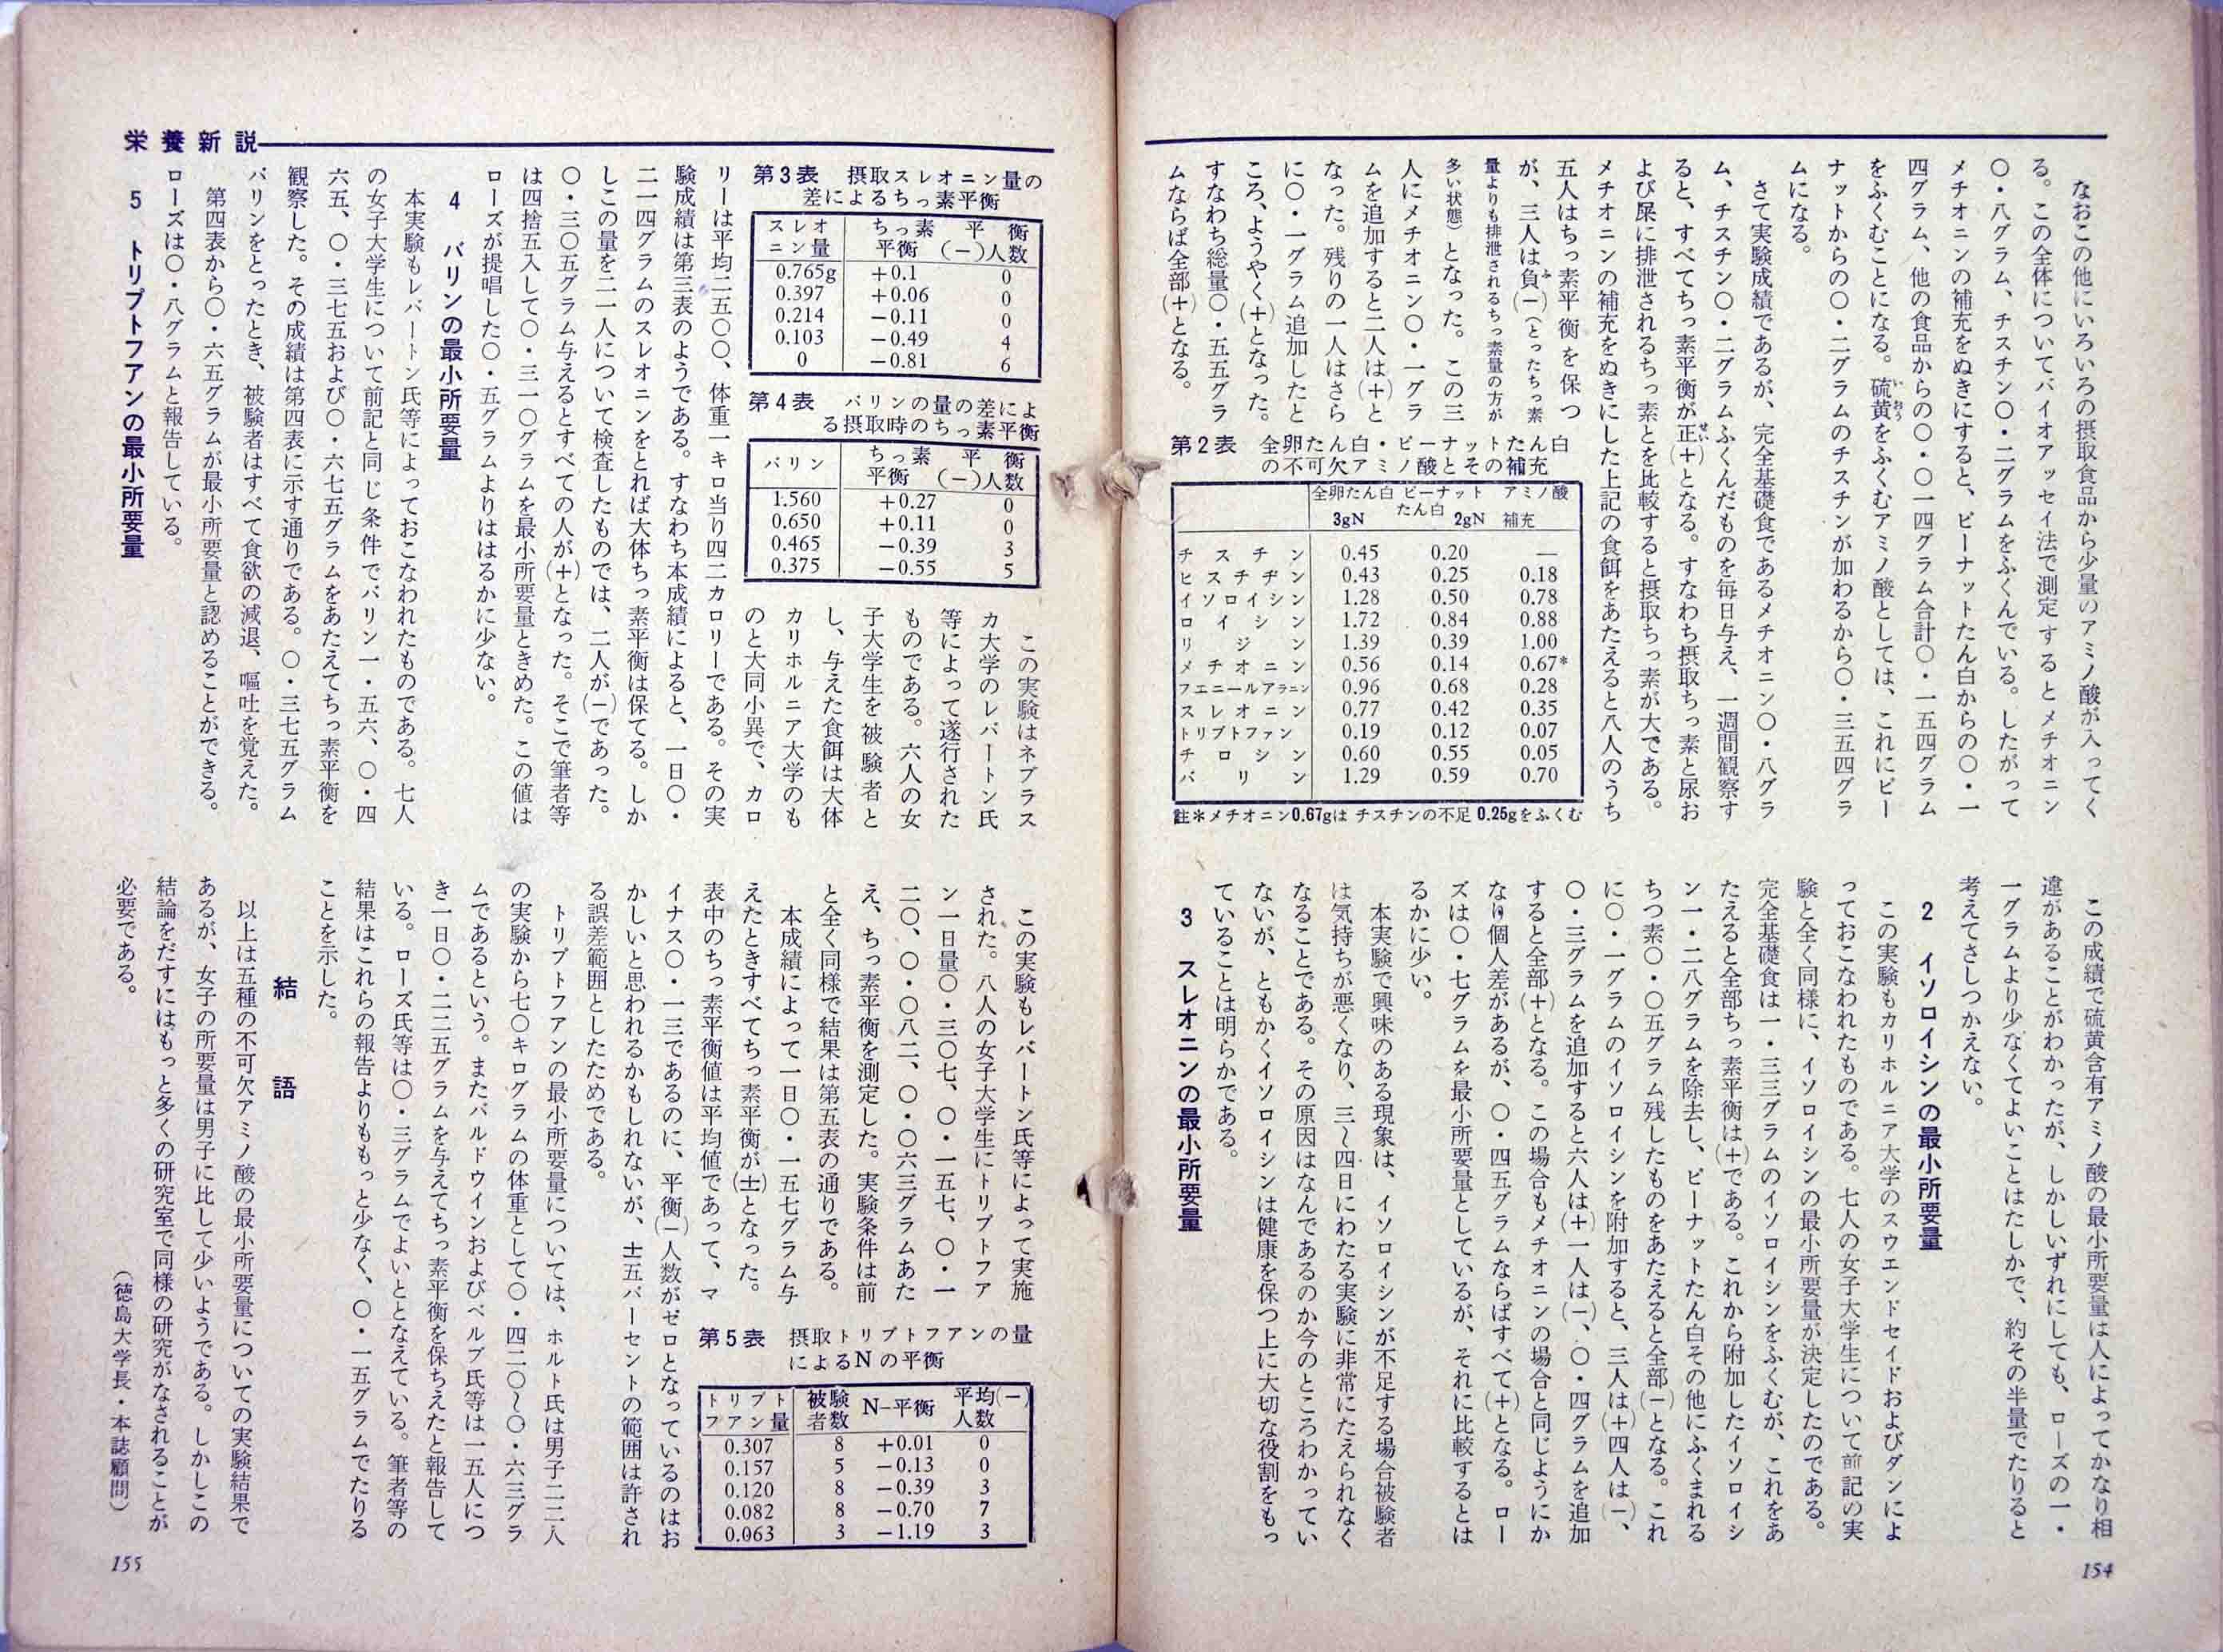 なおこの他にいろいろの摂取食品から少量のアミノ酸が入ってく
る。この全体についてバイオアッセイ法で測定するとメチオニン
〇・八グラム、チスチン〇・二グラムをふくんでいる。したがって
メチオニンの補充をぬきにすると、ピーナットたん白からの〇・一
四グラム、他の食品からの〇・〇一四グラム合計〇・一五四グラム
をふくむことになる。硫黄をふくむアミノ酸としては、これにピー
ナットからの〇・二グラムのチスチンが加わるから〇・三五四グラ
ムになる。
さて実験成績であるが、完全基礎食であるメチオニン〇・八グラ
ム、チスチン〇・二グラムふくんだものを毎日与え、一週間観察す
ると、すべてちっ素平衡が正(+)となる。すなわち摂取ちっ素と尿お
よび屎に排泄されるちっ素とを比較すると摂取ちっ素が大である。
メチオニンの補充をぬきにした上記の食餌をあたえると八人のうち
五人はちっ素平衡を保つ
が、三人は負(−)(とったちっ素
量よりも排泄されるちっ素量の方が
多い状態)となった。この三
人にメチオニン〇・一グラ
ムを追加すると二人は(+)と
なった。残りの一人はさら
に〇・一グラム追加したと
ころ、ようやく(+)となった。
すなわち総量〇・五五グラ
ムならば全部(+)となる。
第2表 全卵たん白・ピーナットたん白
の不可欠アミノ酸とその補充
全卵たん白 3gN ピーナットたん白 2gN アミノ酸補充
チスチン 0.45 0.20 —
ヒスチヂン 0.43 0.25 0.18
イソロイシン 1.28 0.50 0.78
ロイシン 1.72 0.84 0.88
リジン 1.39 0.39 1.00
メチオニン 0.56 0.14 0.67*
フエニールアラニン 0.96 0.68 0.28
スレオニン 0.77 0.42 0.35
トリプトファン 0.19 0.12 0.07
チロシン 0.60 0.55 0.05
バリン 1.29 0.59 0.70
註*メチオニン0.67gは チスチンの不足 0.25gをふくむ
この成績で硫黄含有アミノ酸の最小所要量は人によってかなり相
違があることがわかったが、しかしいずれにしても、ローズの一・
一グラムより少なくてよいことはたしかで、約その半量でたりると
考えてさしつかえない。
2 イソロイシンの最小所要量
この実験もカリホルニア大学のスウエンドセイドおよびダンによ
っておこなわれたものである。七人の女子大学生について前記の実
験と全く同様に、イソロイシンの最小所要量が決定したのである。
完全基礎食は一・三三グラムのイソロイシンをふくむが、これをあ
たえると全部ちっ素平衡は(+)である。これから附加したイソロイシ
ン一・二八グラムを除去し、ピーナットたん白その他にふくまれる
ちつ素〇・〇五グラム残したものをあたえると全部(−)となる。これ
に〇・一グラムのイソロイシンを附加すると、三人は(+)四人は(−)、
〇・三グラムを追加すると六人は(+)一人は(−)、〇・四グラムを追加
すると全部(+)となる。この場合もメチオニンの場合と同じようにか
なり個人差があるが、〇・四五グラムならばすべて(+)となる。ロー
ズは〇・七グラムを最小所要量としているが、それに比較するとは
るかに少い。
本実験で興味のある現象は、イソロイシンが不足する場合被験者
は気持ちが悪くなり、三〜四日にわたる実験に非常にたえられなく
なることである。その原因はなんであるのか今のところわかってい
ないが、ともかくイソロイシンは健康を保つ上に大切な役割をもっ
ていることは明らかである。
3 スレオニンの最小所要量
154
栄養新説
第3表 摂取スレオニン量の
差によるちっ素平衡
スレオニン量 ちっ素平衡 平衡(−)人数
0.765g +0.1 0
0.397 +0.06 0
0.214 −0.11 0
0.103 −0.49 4
0 −0.81 6
第4表 バリンの量の差によ
る摂取時のちっ素平衡
バリン ちっ素平衡 平衡(−)人数
1.560 +0.27 0
0.650 +0.11 0
0.465 −0.39 3
0.375 −0.55 5
この実験はネブラス
カ大学のレバートン氏
等によって遂行された
ものである。六人の女
子大学生を被験者と
し、与えた食餌は大体
カリホルニア大学のも
のと大同小異で、カロ
リーは平均二五〇〇、体重一キロ当り四二カロリーである。その実
験成績は第三表のようである。すなわち本成績によると、一日〇・
二一四グラムのスレオニンをとれば大体ちっ素平衡は保てる。しか
しこの量を二一人について検査したものでは、二人が(−)であった。
〇・三〇五グラム与えるとすべての人が(+)となった。そこで筆者等
は四捨五入して〇・三一〇グラムを最小所要量ときめた。この値は
ローズが提唱した〇・五グラムよりははるかに少ない。
4 バリンの最小所要量
本実験もレバートン氏等によっておこなわれたものである。七人
の女子大学生について前記と同じ条件でバリン一・五六、〇・四
六五、〇・三七五および〇・六七五グラムをあたえてちっ素平衡を
観察した。その成績は第四表に示す通りである。〇・三七五グラム
バリンをとったとき、被験者はすべて食欲の減退、嘔吐を覚えた。
第四表から〇・六五グラムが最小所要量と認めることができる。
ローズは〇・八グラムと報告している。
5 トリプトフアンの最小所要量
この実験もレバートン氏等によって実施
された。八人の女子大学生にトリプトフア
ン一日量〇・三〇七、〇・一五七、〇・一
二〇、〇・〇八二、〇・〇六三グラムあた
え、ちっ素平衡を測定した。実験条件は前
と全く同様で結果は第五表の通りである。
本成績によって一日〇・一五七グラム与
えたときすべてちっ素平衡が(±)となった。
表中のちっ素平衡値は平均値であって、マ
イナス〇・一三であるのに、平衡(−)人数がゼロとなっているのはお
かしいと思われるかもしれないが、±五パーセントの範囲は許され
る誤差範囲としたためである。
トリプトフアンの最小所要量については、ホルト氏は男子二二人
の実験から七〇キログラムの体重として〇・四二〇〜〇・六三グラ
ムであるという。またバルドウインおよびベルブ氏等は一五人につ
き一日〇・二二五グラムを与えてちっ素平衡を保ちえたと報告して
いる。ローズ氏等は〇・三グラムでよいととなえている。筆者等の
結果はこれらの報告よりももっと少なく、〇・一五グラムでたりる
ことを示した。
第5表 摂取トリプトフアンの量
によるNの平衡
トリプトフアン量 被験者数 N-平衡 平均(−)人数
0.307 8 +0.01 0
0.157 5 −0.13 0
0.120 8 −0.39 3
0.082 8 −0.70 7
0.063 3 −1.19 3
結語
以上は五種の不可欠アミノ酸の最小所要量についての実験結果で
あるが、女子の所要量は男子に比して少いようである。しかしこの
結論をだすにはもっと多くの研究室で同様の研究がなされることが
必要である。
(徳島大学長・本誌顧問)
155